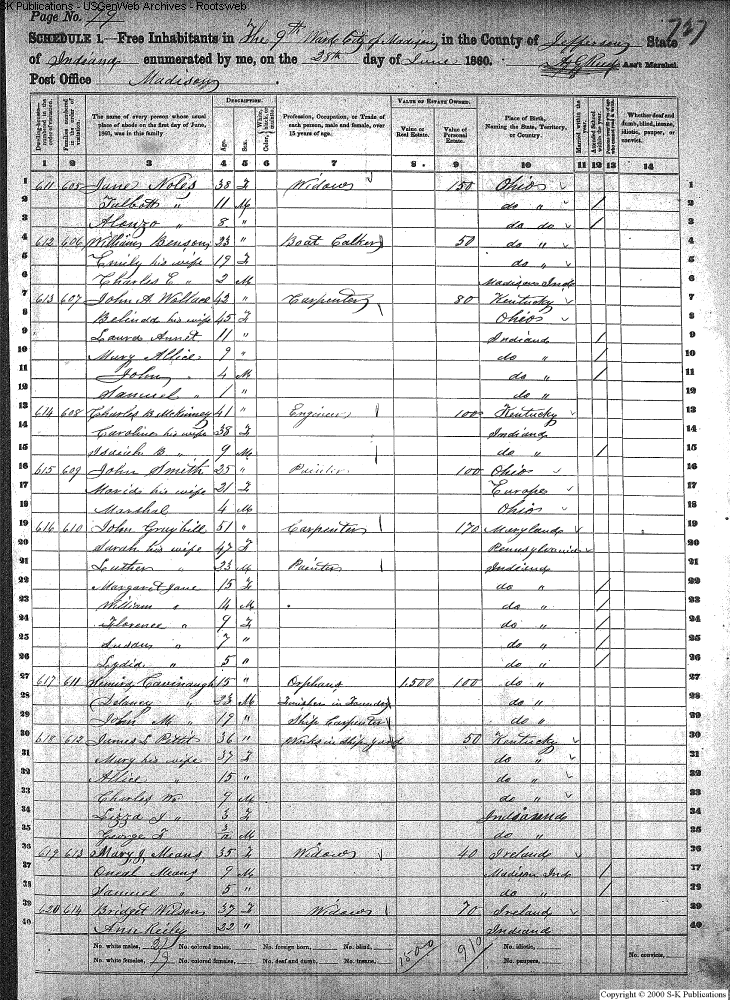 SK Publications - USGenWeb Archives - Rootsweb
Page No. 79
737
SCHEDULE 1.—Free Inhabitants in The 9th Ward City of Madison in the County of Jefferson State
of Indiana enumerated by me, on the 28th day of June 1860. Ass't Marshal.
Post Office Madison
DESCRIPTION. VALUE OF ESTATE OWNED.
Dwelling-houses—numbered in the order of visitation. Families numbered in the order of visitation. The name of every person whose usual place of abode on the first day of June, 1860, was in this family Age. Sex. Color, White, black, or mulatto. Profession, Occupation, or Trade of each person, male and female, over 15 years of age. Value of Real Estate. Value of Personal Estate. Place of Birth, Naming the State, Territory, or Country. Married within the year. Attended School within the year. Whether deaf and dumb, blind, insane, idiotic, pauper, or convict.
1 2 3 4 5 6 7 8 9 10 11 12 13 14
1 611 605 Jane Noles 38 F Widow 150 Ohio 1
2 Talbott " 11 M do " / 2
3 Alonzo " 8 " do do / 3
4 612 606 William Benson 23 " Boat Calker 50 do " 4
5 Emily his wife 19 F do " 5
6 Charles E " 2 M Madison Ind 6
7 613 607 John A Wallace 42 " Carpenter 80 Kentucky 7
8 Belinda his wife 45 F Ohio 8
9 Laura Annet 11 " Indiana / 9
10 Mary Allice 9 " do " / 10
11 John 4 M do " / 11
12 Samuel " 1 " do " 12
13 614 608 Charles B McKinney 41 " Engineer 100 Kentucky 13
14 Caroline his wife 38 F Indiana 14
15 B " 9 M do " / 15
16 615 609 John Smith 25 " Painter 100 Ohio 16
17 Maria his wife 21 F Europe 17
18 Marshal 4 M Ohio 18
19 616 610 John Graybill 51 " Carpenter 170 Maryland 19
20 Sarah his wife 47 F Pennsylvania 20
21 Luther " 23 M Painter Indiana 21
22 Margaret Jane 15 F do " / 22
23 William " 14 M do " / 23
24 Florence " 9 F do " / 24
25 Susan " 7 " do " / 25
26 Lydia " 5 " do " / 26
27 617 611 Cavinaugh 15 " Orphan 1.500 100 do " 27
28 Delaney " 23 M Finisher in Foundry do " 28
29 John M " 19 " Ship Carpenter do " 29
30 618 612 James L Pettit 36 " Works in ship yard 50 Kentucky 30
31 Mary his wife 37 F do " 31
32 Allice " 15 " do " 32
33 Charles W 9 M do " 33
34 Lizza J " 3 F Indiana 34
35 George T 3/12 M do " 35
36 619 613 Mary J Means 35 F Widow 40 Ireland 36
37 Oneal Means 9 M Madison Ind / 37
38 Samuel " 5 " do " / 38
39 620 614 Bridget Wilson 37 F Widow 70 Ireland 39
40 Ann Kiely 22 " Indiana 40
No. white males, 21 No. colored males. No. foreign born, No. blind, 1500 910 No. idiotic,
No. white females, 19 No. colored females. No. deaf and dumb. No. insane. No. paupers. No. convicts,
Copyright © 2000 S-K Publications